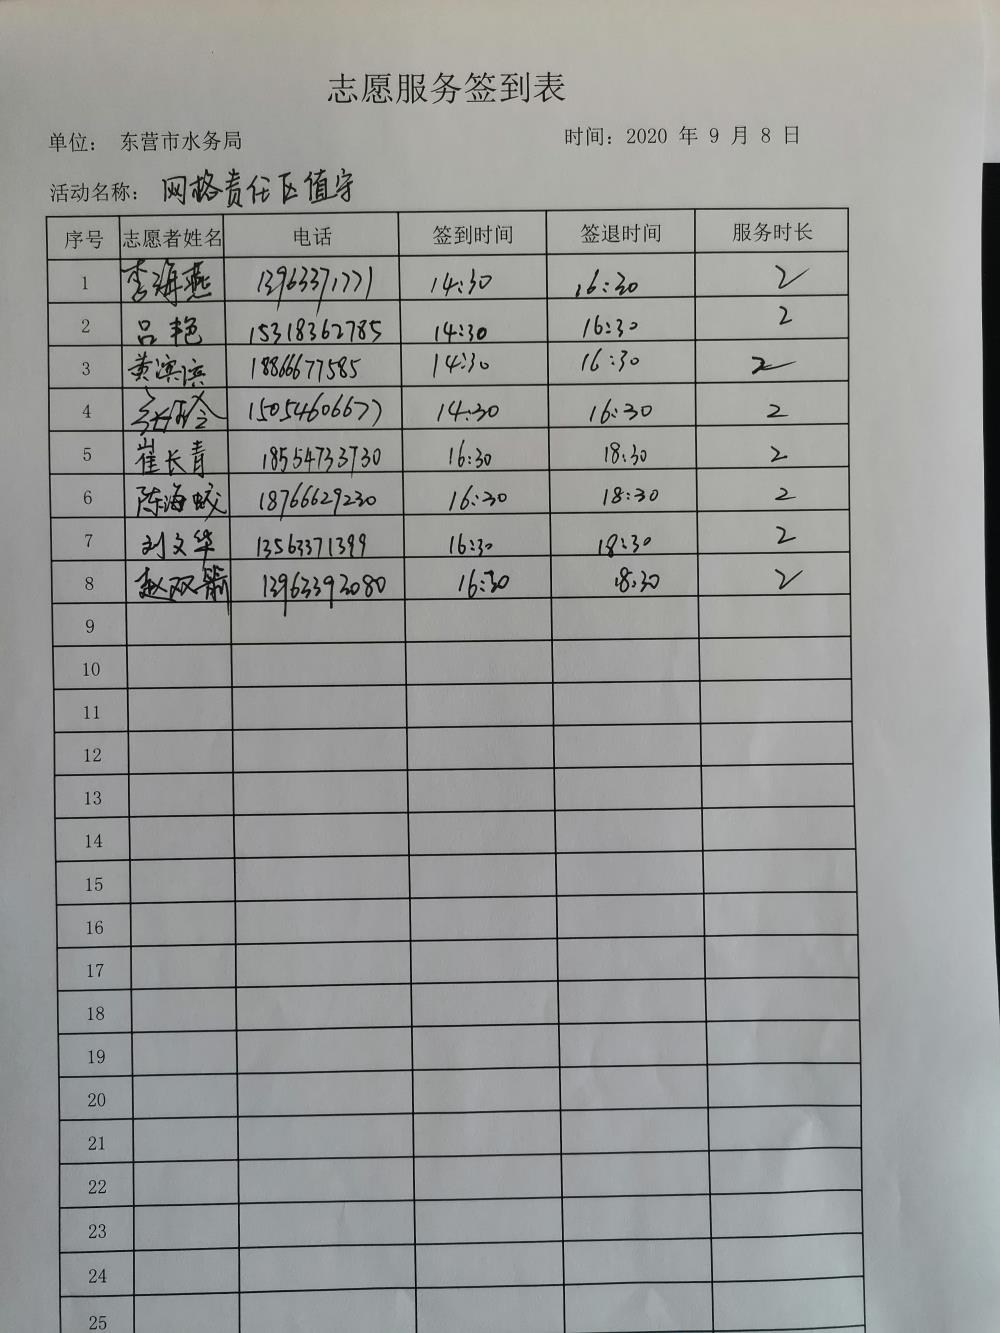 志愿服务签到表
单位： 东营市水务局 时间：2020 年 9 月 8 日
活动名称： 网格责任区值守
序号 志愿者姓名 电话 签到时间 签退时间 服务时长
1 李海燕 13963371771 14:30 16:30 2
2 吕艳 15318362785 14:30 16:30 2
3 黄滨滨 18866677585 14:30 16:30 2
4 15054606677 14:30 16:30 2
5 崔长青 18554733730 16:30 18:30 2
6 陈海蛟 18766629230 16:30 18:30 2
7 刘文华 13563371399 16:30 18:30 2
8 赵双 13963392080 16:30 18:30 2
9
10
11
12
13
14
15
16
17
18
19
20
21
22
23
24
25